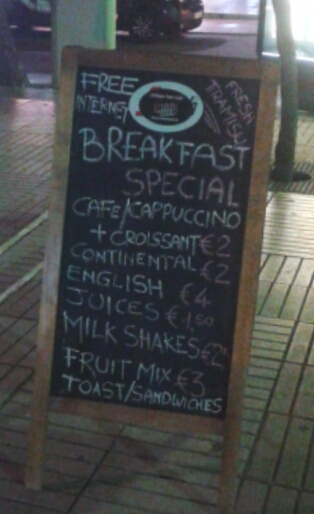 FREE
INTERNET
FRESH
TRAMISU
BREAKFAST
SPECIAL
CAFE/CAPPUCCINO
+ CROISSANT €2
CONTINENTAL €2
ENGLISH €4
JUICES €1,50
MILK SHAKES €2
FRUIT MIX €3
TOAST/SANDWICHES